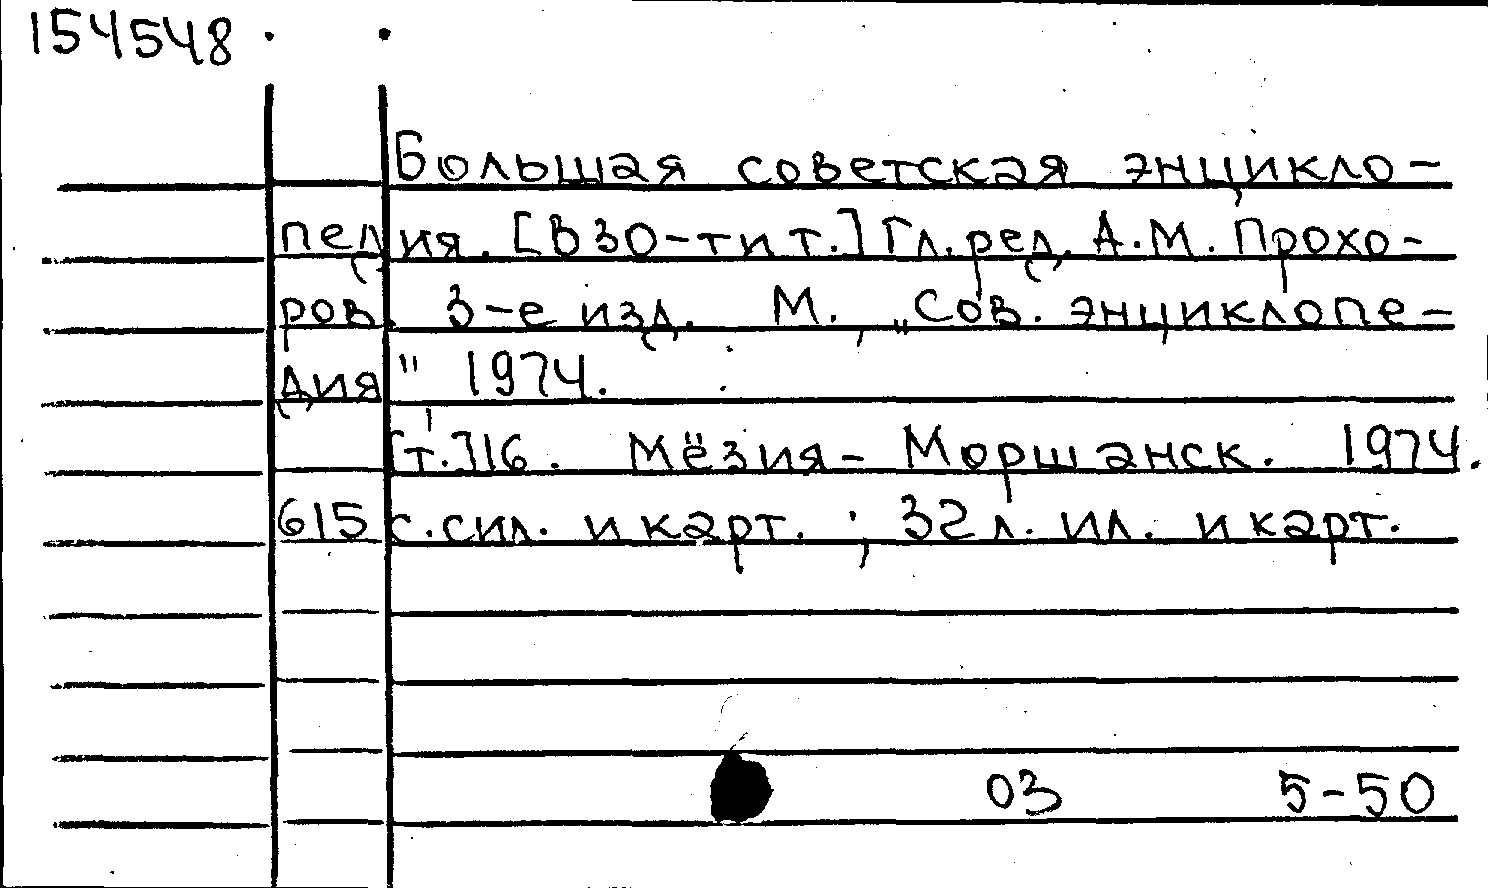 154548
Большая советская энцикло-
педия. [В 30-ти т.] Гл. ред. А. М. Прохо-
ров. 3-е изд. М., „Сов. энциклопе-
дия" 1974.
[т.] 16. Мёзия - Моршанск. 1974.
615 с. с ил. и карт.; 32 л. ил. и карт.
03 5-50